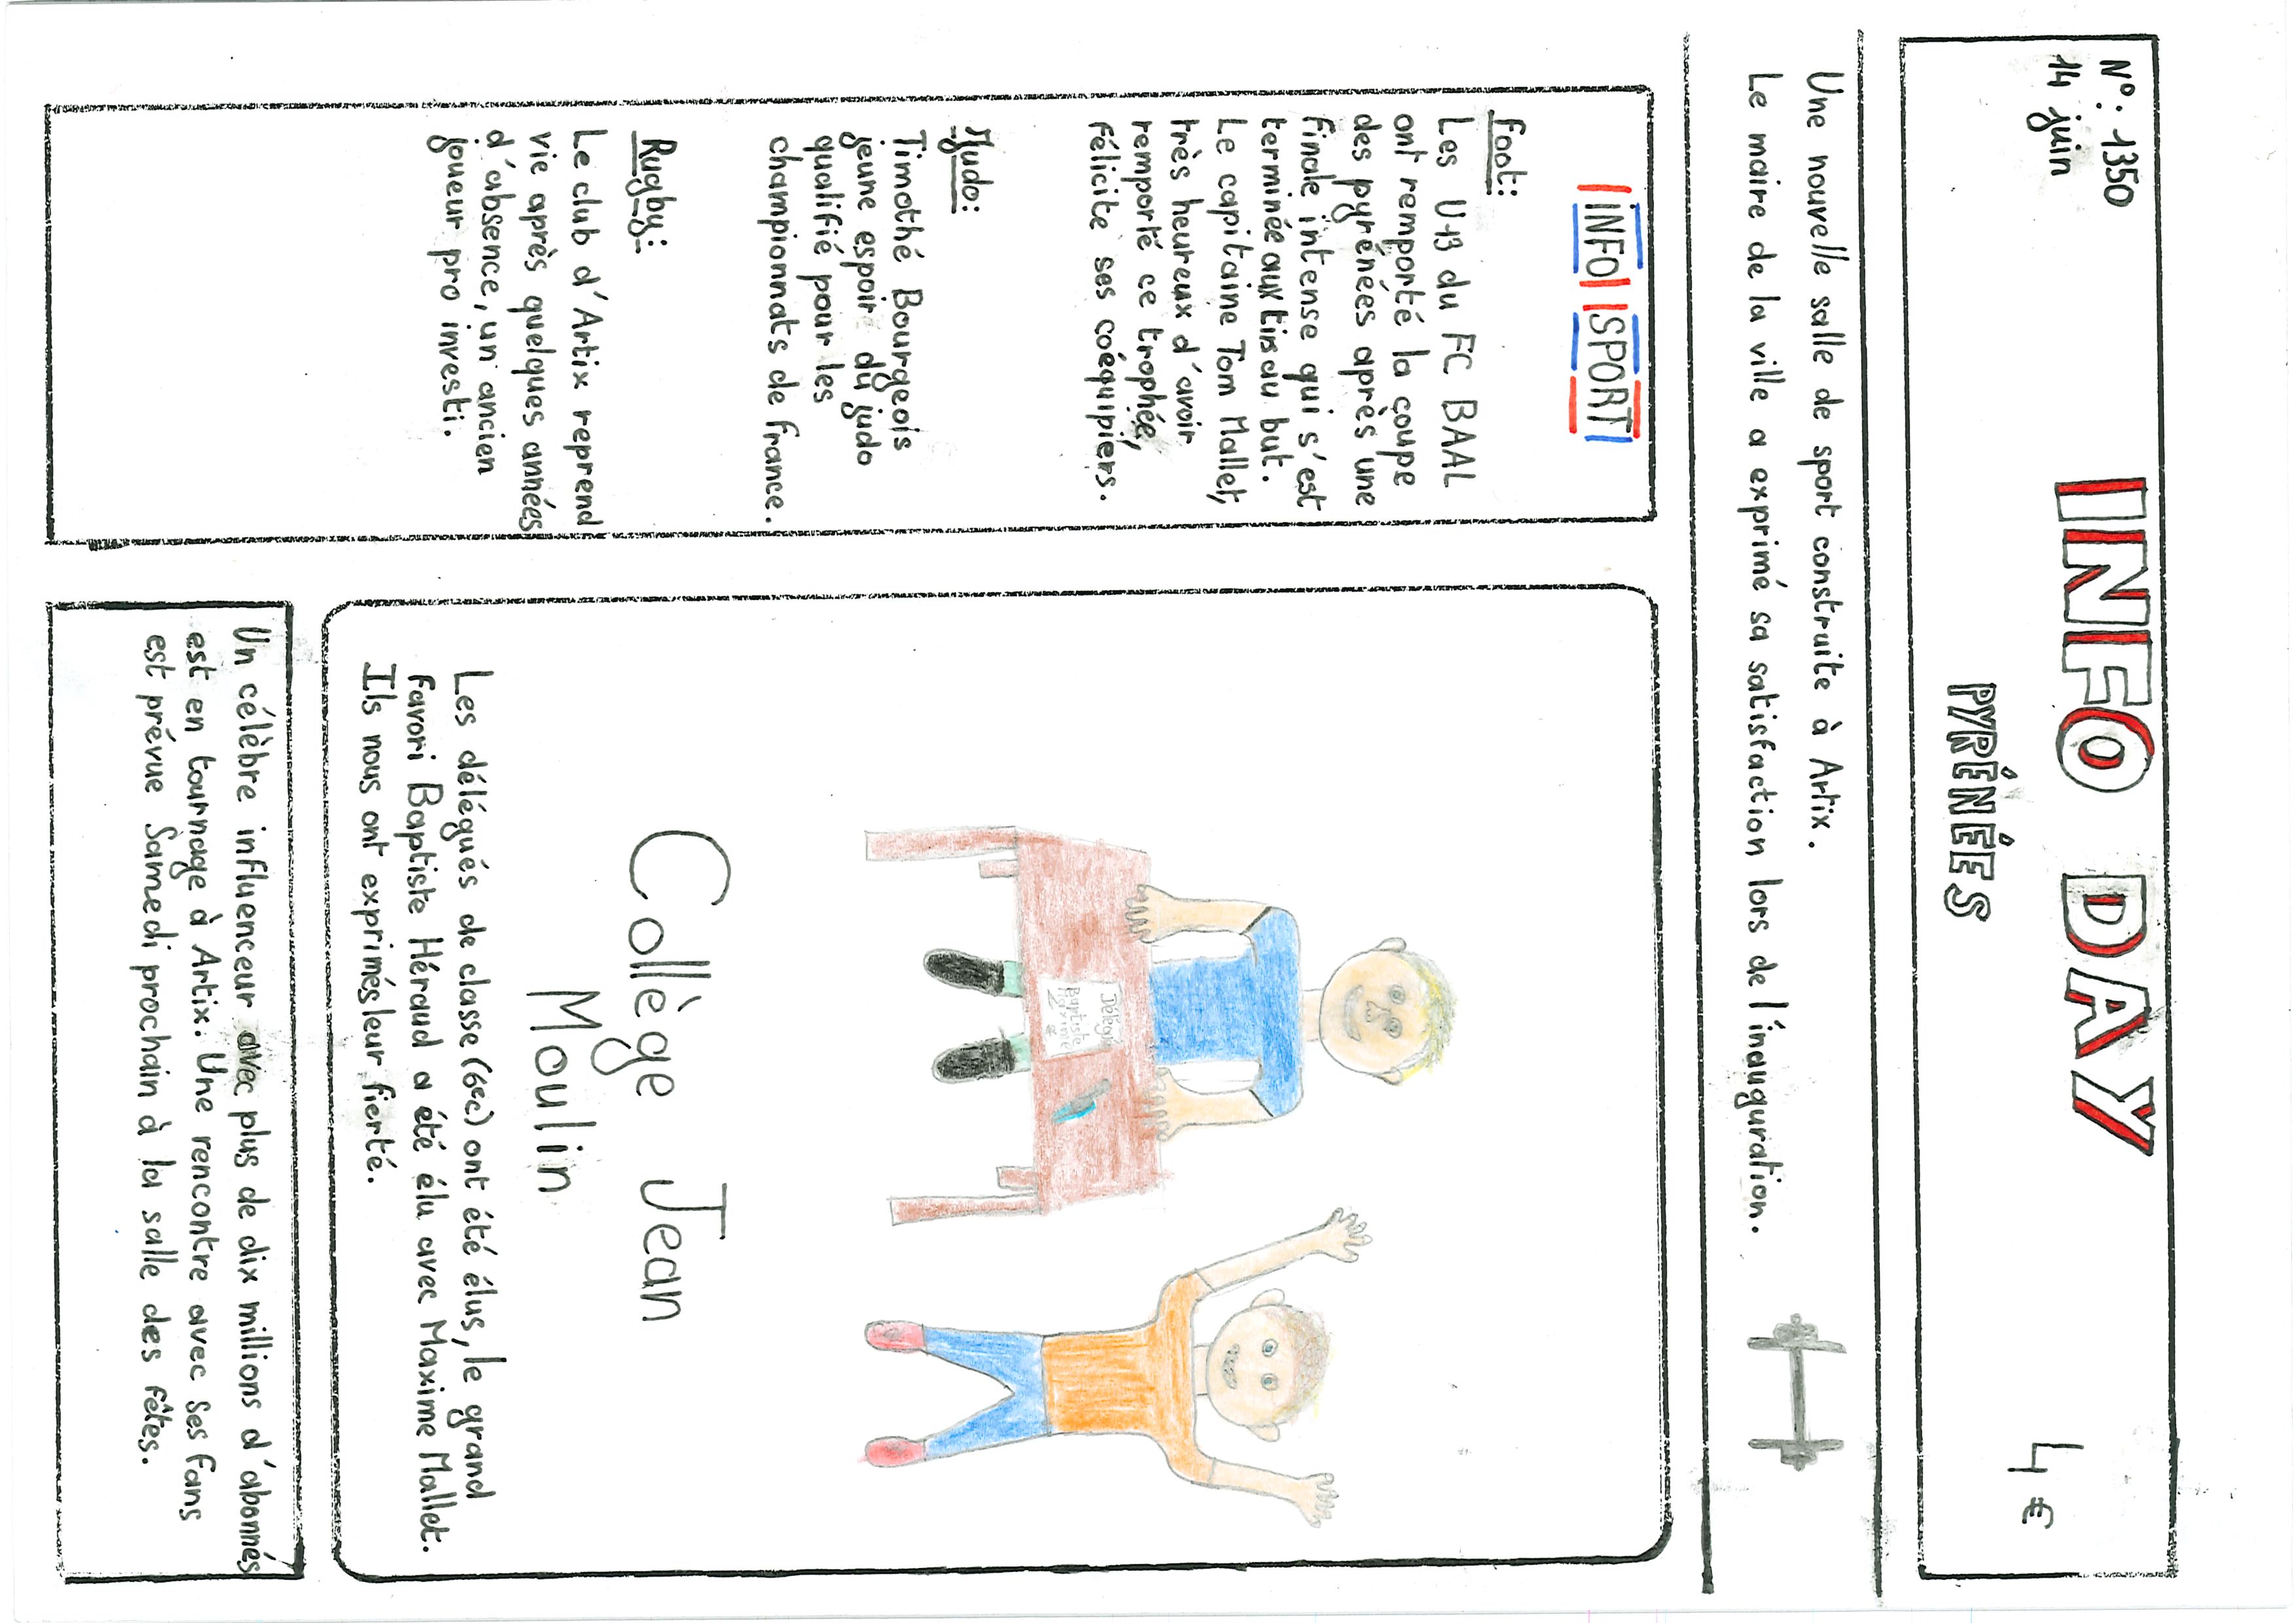 N°: 1350
14 juin
INFO DAY
PYRÉNÉES
4 €
Une nouvelle salle de sport construite à Artix.
Le maire de la ville a exprimé sa satisfaction lors de l'inauguration.
INFO SPORT
Foot:
Les U13 du FC BAAL
ont remporté la coupe
des pyrénées après une
finale intense qui s'est
terminée aux tirs au but.
Le capitaine Tom Mallet,
très heureux d'avoir
remporté ce trophée,
félicite ses coéquipiers.
Judo:
Timothé Bourgeois
jeune espoir du judo
qualifié pour les
championnats de france.
Rugby:
Le club d'Artix reprend
vie après quelques années
d'absence, un ancien
joueur pro investi.
Baptiste
Collège Jean
Moulin
Les délégués de classe (6ec) ont été élus, le grand
favori Baptiste Héraud a été élu avec Maxime Mallet.
Ils nous ont exprimés leur fierté.
Un célèbre influenceur avec plus de dix millions d'abonnés
est en tournage à Artix. Une rencontre avec ses fans
est prévue Samedi prochain à la salle des fêtes.